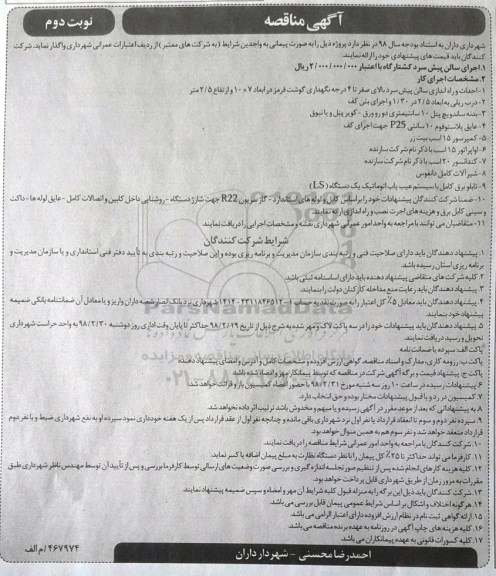 آگهی مناقصه
نوبت دوم
شهرداری داران به استناد بودجه سال ۹۸ در نظر دارد پروژه ذیل را به صورت پیمانی به واجدین شرایط (به شرکت های معتبر) از ردیف اعتبارات عمرانی شهرداری واگذار نماید. شرکت
کنندگان باید قیمت های پیشنهادی خود را ارائه نمایند.
۱. اجرای سالن پیش سرد کشتارگاه با اعتبار ۲/۰۰۰/۰۰۰/۰۰۰ ریال
۲. مشخصات اجرای کار
۱- احداث و راه اندازی سالن پیش سرد بالای صفر تا ۴ درجه نگهداری گوشت قرمز در ابعاد ۷ * ۱۰ و ارتفاع ۲/۵ متر
۲- درب ریلی به ابعاد ۲/۵ در ۱/۳۰ و اجرای بتن کف
۳- بدنه ساندویچ پنل ۱۰ سانتیمتری دو رو ورق - کویر پنل و یا نیوق
۴- عایق پلاستوفوم ۱۰ سانتی P25 جهت اجرای کف
۵- کمپرسور ۱۵ اسب بیت زر
۶- اواپراتور ۱۵ اسب با ذکر نام شرکت سازنده
۷- کندانسور ۲۰ اسب با ذکر نام شرکت سازنده
۸- شیرآلات کامل دانفوس
۹- تابلو برق کامل با سیستم عیب یاب اتوماتیک یک دستگاه (LS)
۱۰- ضمنا شرکت کنندگان پیشنهادات خود را براساس کابل و لوله های استاندارد - گاز سریون R22 جهت شارژ دستگاه - روشنایی داخل کابین و اتصالات کامل - عایق لوله ها - داکت
و سینی کابل برق و هزینه های اجرت نصب و راه اندازی ارائه نمایند
۱۱- متقاضیان می توانند با مراجعه به واحد امور عمرانی شهرداری نقشه و مشخصات اجرایی را دریافت نمایند.
شرایط شرکت کنندگان
۱. پیشنهاد دهندگان باید دارای صلاحیت فنی و رتبه بندی سازمان مدیریت و برنامه ریزی بوده و این صلاحیت و رتبه بندی به تأیید دفتر فنی استانداری و یا سازمان مدیریت و
برنامه ریزی استان رسیده باشد.
۲. کلیه شرکت های متقاضی پیشنهاد دهنده باید دارای اساسنامه ثبتی باشد.
۳. پیشنهاد دهندگان باید رعایت منع مداخله کارکنان دولت را بنمایند.
۴. پیشنهاد دهندگان باید معادل ۵٪ کل اعتبار را به صورت نقد به حساب
شهرداری نزد بانک انصار شعبه داران واریز و یا معادل آن ضمانتنامه بانکی ضمیمه
پیشنهاد خود بنمایند.
۵. پیشنهاد دهندگان باید پیشنهادات خود را در سه پاکت لاک و مهر شده به شرح ذیل از تاریخ ۹۸/۲/۱۹ حداکثر تا پایان وقت اداری روز دوشنبه ۹۸/۲/۳۰ به واحد حراست شهرداری
تحویل و رسید دریافت نمایند.
پاکت الف: سپرده یا ضمانت نامه
پاکت ب: رزومه کاری، مدارک و اسناد مناقصه، گواهی ارزش افزوده و مشخصات کامل و آدرس و امضای پیشنهاد دهنده
پاکت ج: پیشنهاد قیمت و برگه آگهی شرکت در مناقصه که توسط پیمانکار مهر و امضاء شده باشد.
۶. پیشنهادات رسیده در ساعت ۱۰ روز سه شنبه مورخ ۹۸/۲/۳۱ با حضور اعضاء کمیسیون باز و قرائت خواهد شد.
۷. کمیسیون در رد و یا قبول پیشنهادات مختار بوده و حق انتخاب دارد.
۸. به پیشنهاداتی که بعد از موعد مقرر در آگهی رسیده و یا مبهم و مخدوش باشد ترتیب اثر داده نخواهد شد.
۹. سپرده نفر دوم و سوم تا انعقاد قرارداد با نفر اول نزد شهرداری باقی مانده و چنانچه نفر اول از عقد قرارداد پس از یک هفته خودداری نمود سپرده او به نفع شهرداری ضبط و با نفر دوم
قرارداد منعقد خواهد شد و نفر سوم هم به همین منوال خواهد بود.
۱۰. شرکت کنندگان با مراجعه به واحد امور عمرانی شرایط مناقصه را دریافت نمایند.
۱۱. کارفرما می تواند حداکثر تا ۲۵٪ کل پیمان را با نظر دستگاه نظارت به مبلغ پیمان اضافه یا کسر نماید.
۱۲. کلیه هزینه کارهای انجام شده پس از تنظیم صورتجلسه اندازه گیری و بررسی صورت وضعیت های ارسالی توسط کارفرما بررسی و پس از تأیید آن توسط مهندس ناظر شهرداری طبق
مقررات به مرور زمان از طریق شهرداری قابل پرداخت خواهد بود.
۱۳. شرکت کنندگان باید ذیل این برگه را به منزله قبول کلیه شرایط آن مهر و امضاء و سپس ضمیمه پیشنهاد نمایند.
۱۴. هرگونه اختلاف و اشکال بر اساس شرایط عمومی پیمان قابل بررسی می باشد.
۱۵. ارائه گواهی ثبت نام در نظام ارزش افزوده دارای اعتبار الزامی می باشد.
۱۶. کلیه هزینه های چاپ آگهی در روزنامه به عهده برنده مناقصه می باشد.
۱۷. کلیه کسورات قانونی به عهده پیمانکاران می باشد.
احمدرضا محسنی - شهردار داران
۴۶۷۹۷۴/م الف
ParsNamadData